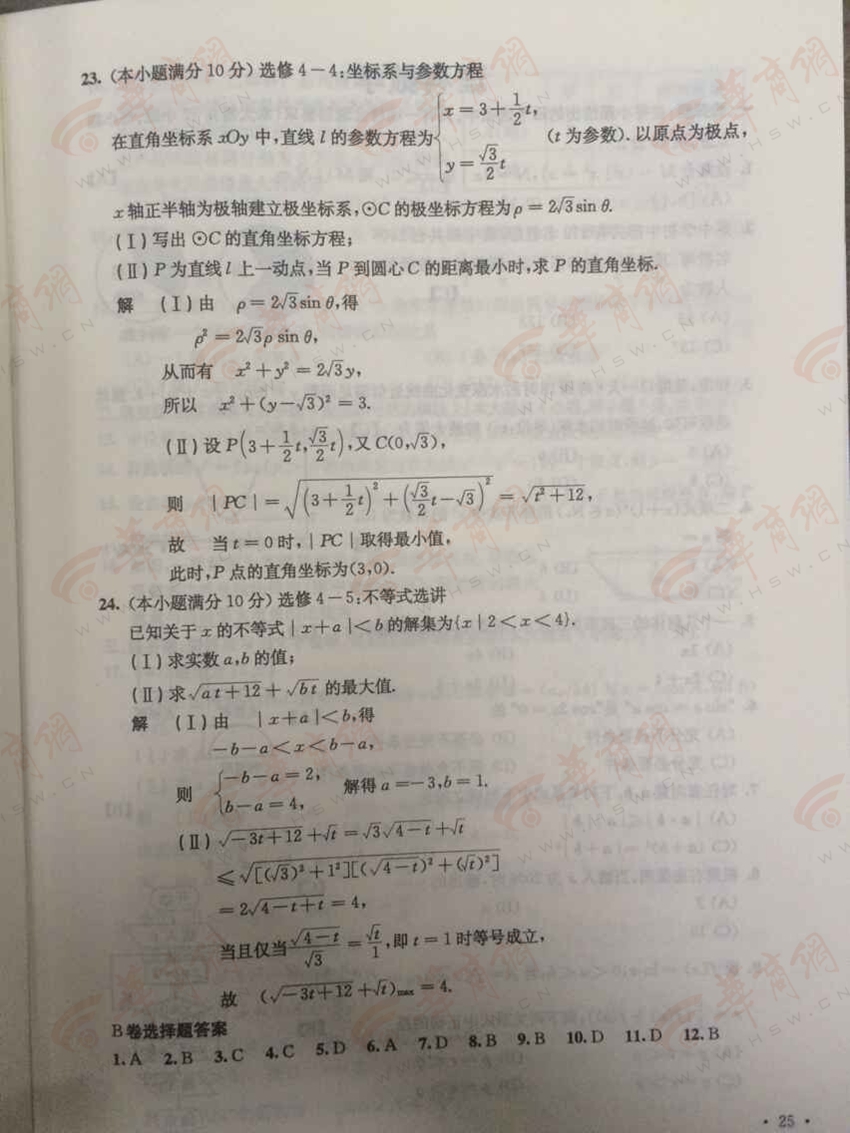 23. (本小题满分 10 分) 选修 4-4:坐标系与参数方程
在直角坐标系 xOy 中,直线 l 的参数方程为{x=3+1/2t, y=√3/2t (t 为参数). 以原点为极点,
x 轴正半轴为极轴建立极坐标系,⊙C 的极坐标方程为 ρ=2√3sin θ.
(Ⅰ) 写出 ⊙C 的直角坐标方程;
(Ⅱ) P 为直线 l 上一动点,当 P 到圆心 C 的距离最小时,求 P 的直角坐标.
解 (Ⅰ) 由 ρ=2√3sin θ,得
ρ²=2√3ρ sin θ,
从而有 x²+y²=2√3y,
所以 x²+(y-√3)²=3.
(Ⅱ) 设 P(3+1/2t,√3/2t),又 C(0,√3),
则 |PC|=√((3+1/2t)²+(√3/2t-√3)²)=√(t²+12),
故 当 t=0 时,|PC| 取得最小值,
此时,P 点的直角坐标为(3,0).
24. (本小题满分 10 分) 选修 4-5:不等式选讲
已知关于 x 的不等式 |x+a|<b 的解集为{x|2<x<4}.
(Ⅰ) 求实数 a,b 的值;
(Ⅱ) 求 √(at+12)+√(bt) 的最大值.
解 (Ⅰ) 由 |x+a|<b,得
-b-a<x<b-a,
则 {-b-a=2, b-a=4, 解得 a=-3,b=1.
(Ⅱ) √(-3t+12)+√t=√3√(4-t)+√t
≤√([(√3)²+1²][(√(4-t))²+(√t)²])
=2√(4-t+t)=4,
当且仅当 √(4-t)/√3=√t/1,即 t=1 时等号成立,
故 (√(-3t+12)+√t)max=4.
B 卷选择题答案
1. A 2. B 3. C 4. C 5. D 6. A 7. D 8. B 9. B 10. D 11. D 12. B
· 25 ·
華商網
WWW.HSW.CN